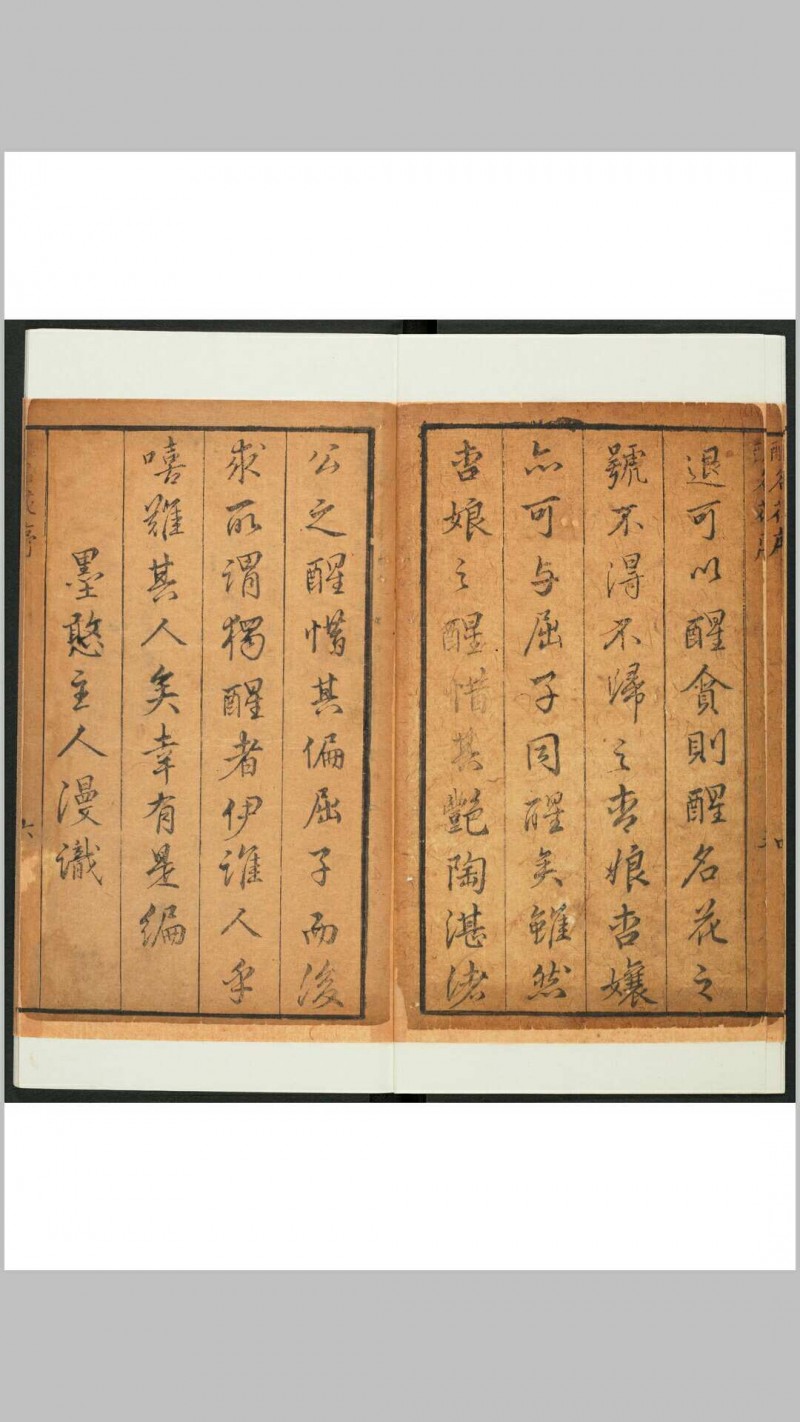 退可以醒貪則醒名花之
號不得不歸之杏娘杏孃
亦可与屈子同醒矣雖然
杏娘之醒惜其艷陶湛諸
公之醒惜其偏屈子而後
求所謂獨醒者伊誰人乎
嘻難其人矣幸有是編
墨憨主人漫識